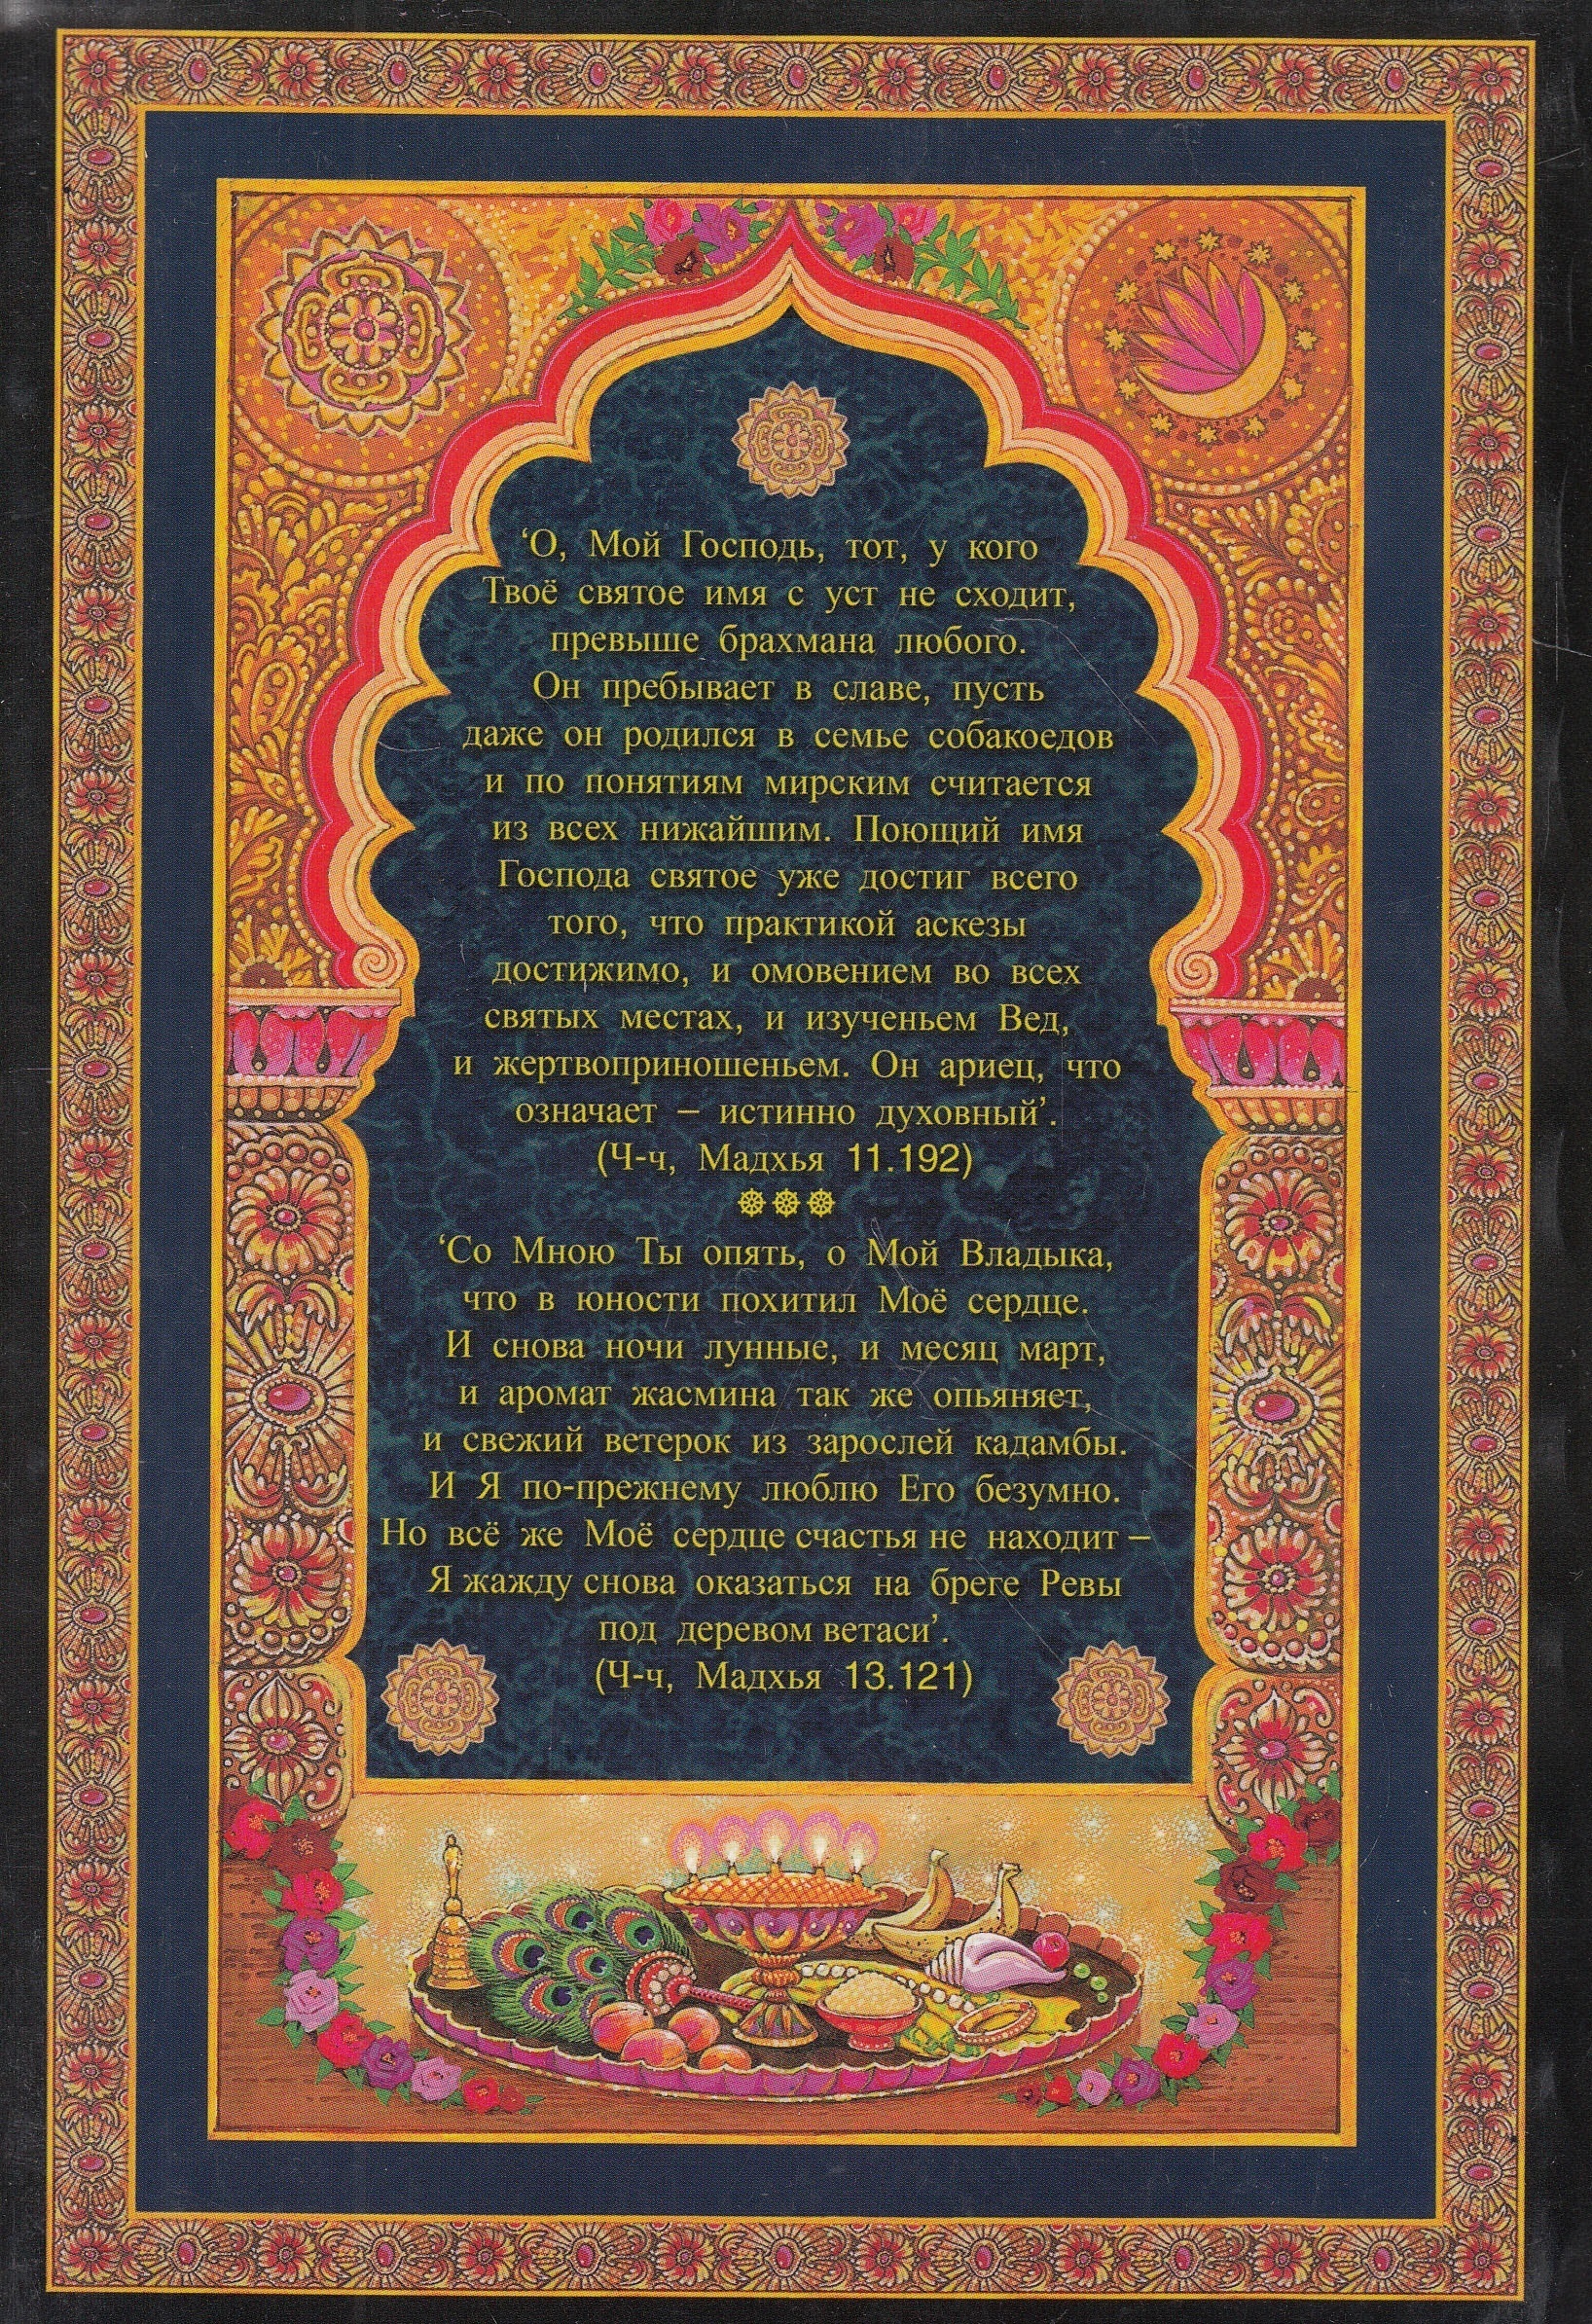 ‘О, Мой Господь, тот, у кого
Твоё святое имя с уст не сходит,
превыше брахмана любого.
Он пребывает в славе, пусть
даже он родился в семье собакоедов
и по понятиям мирским считается
из всех нижайшим. Поющий имя
Господа святое уже достиг всего
того, что практикой аскезы
достижимо, и омовением во всех
святых местах, и изученьем Вед,
и жертвоприношеньем. Он ариец, что
означает – истинно духовный’.
(Ч-ч, Мадхья 11.192)
‘Со Мною Ты опять, о Мой Владыка,
что в юности похитил Моё сердце.
И снова ночи лунные, и месяц март,
и аромат жасмина так же опьяняет,
и свежий ветерок из зарослей кадамбы.
И Я по-прежнему люблю Его безумно.
Но всё же Моё сердце счастья не находит –
Я жажду снова оказаться на бреге Ревы
под деревом ветаси’.
(Ч-ч, Мадхья 13.121)